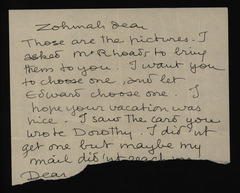 Zohmah dear
Those are the pictures. I
asked Mr Rhoads to bring
them to you. I want you
to choose one, and let
Edward choose one. I
hope your vacation was
nice. I saw the card you
wrote Dorothy. I did'nt
get one but maybe my
mail did'nt reach me.
Dear